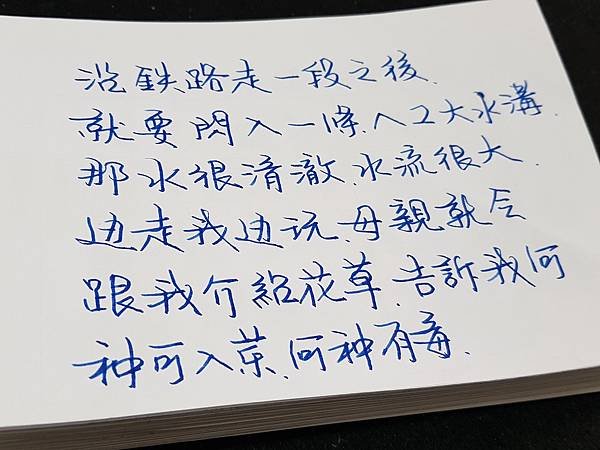 沿鉄路走一段之後.
就要閃入一條人工大水溝.
那水很清澈.水流很大.
边走我边玩.母親就会
跟我介紹花草.告訴我何
种可入菜.何种有毒.